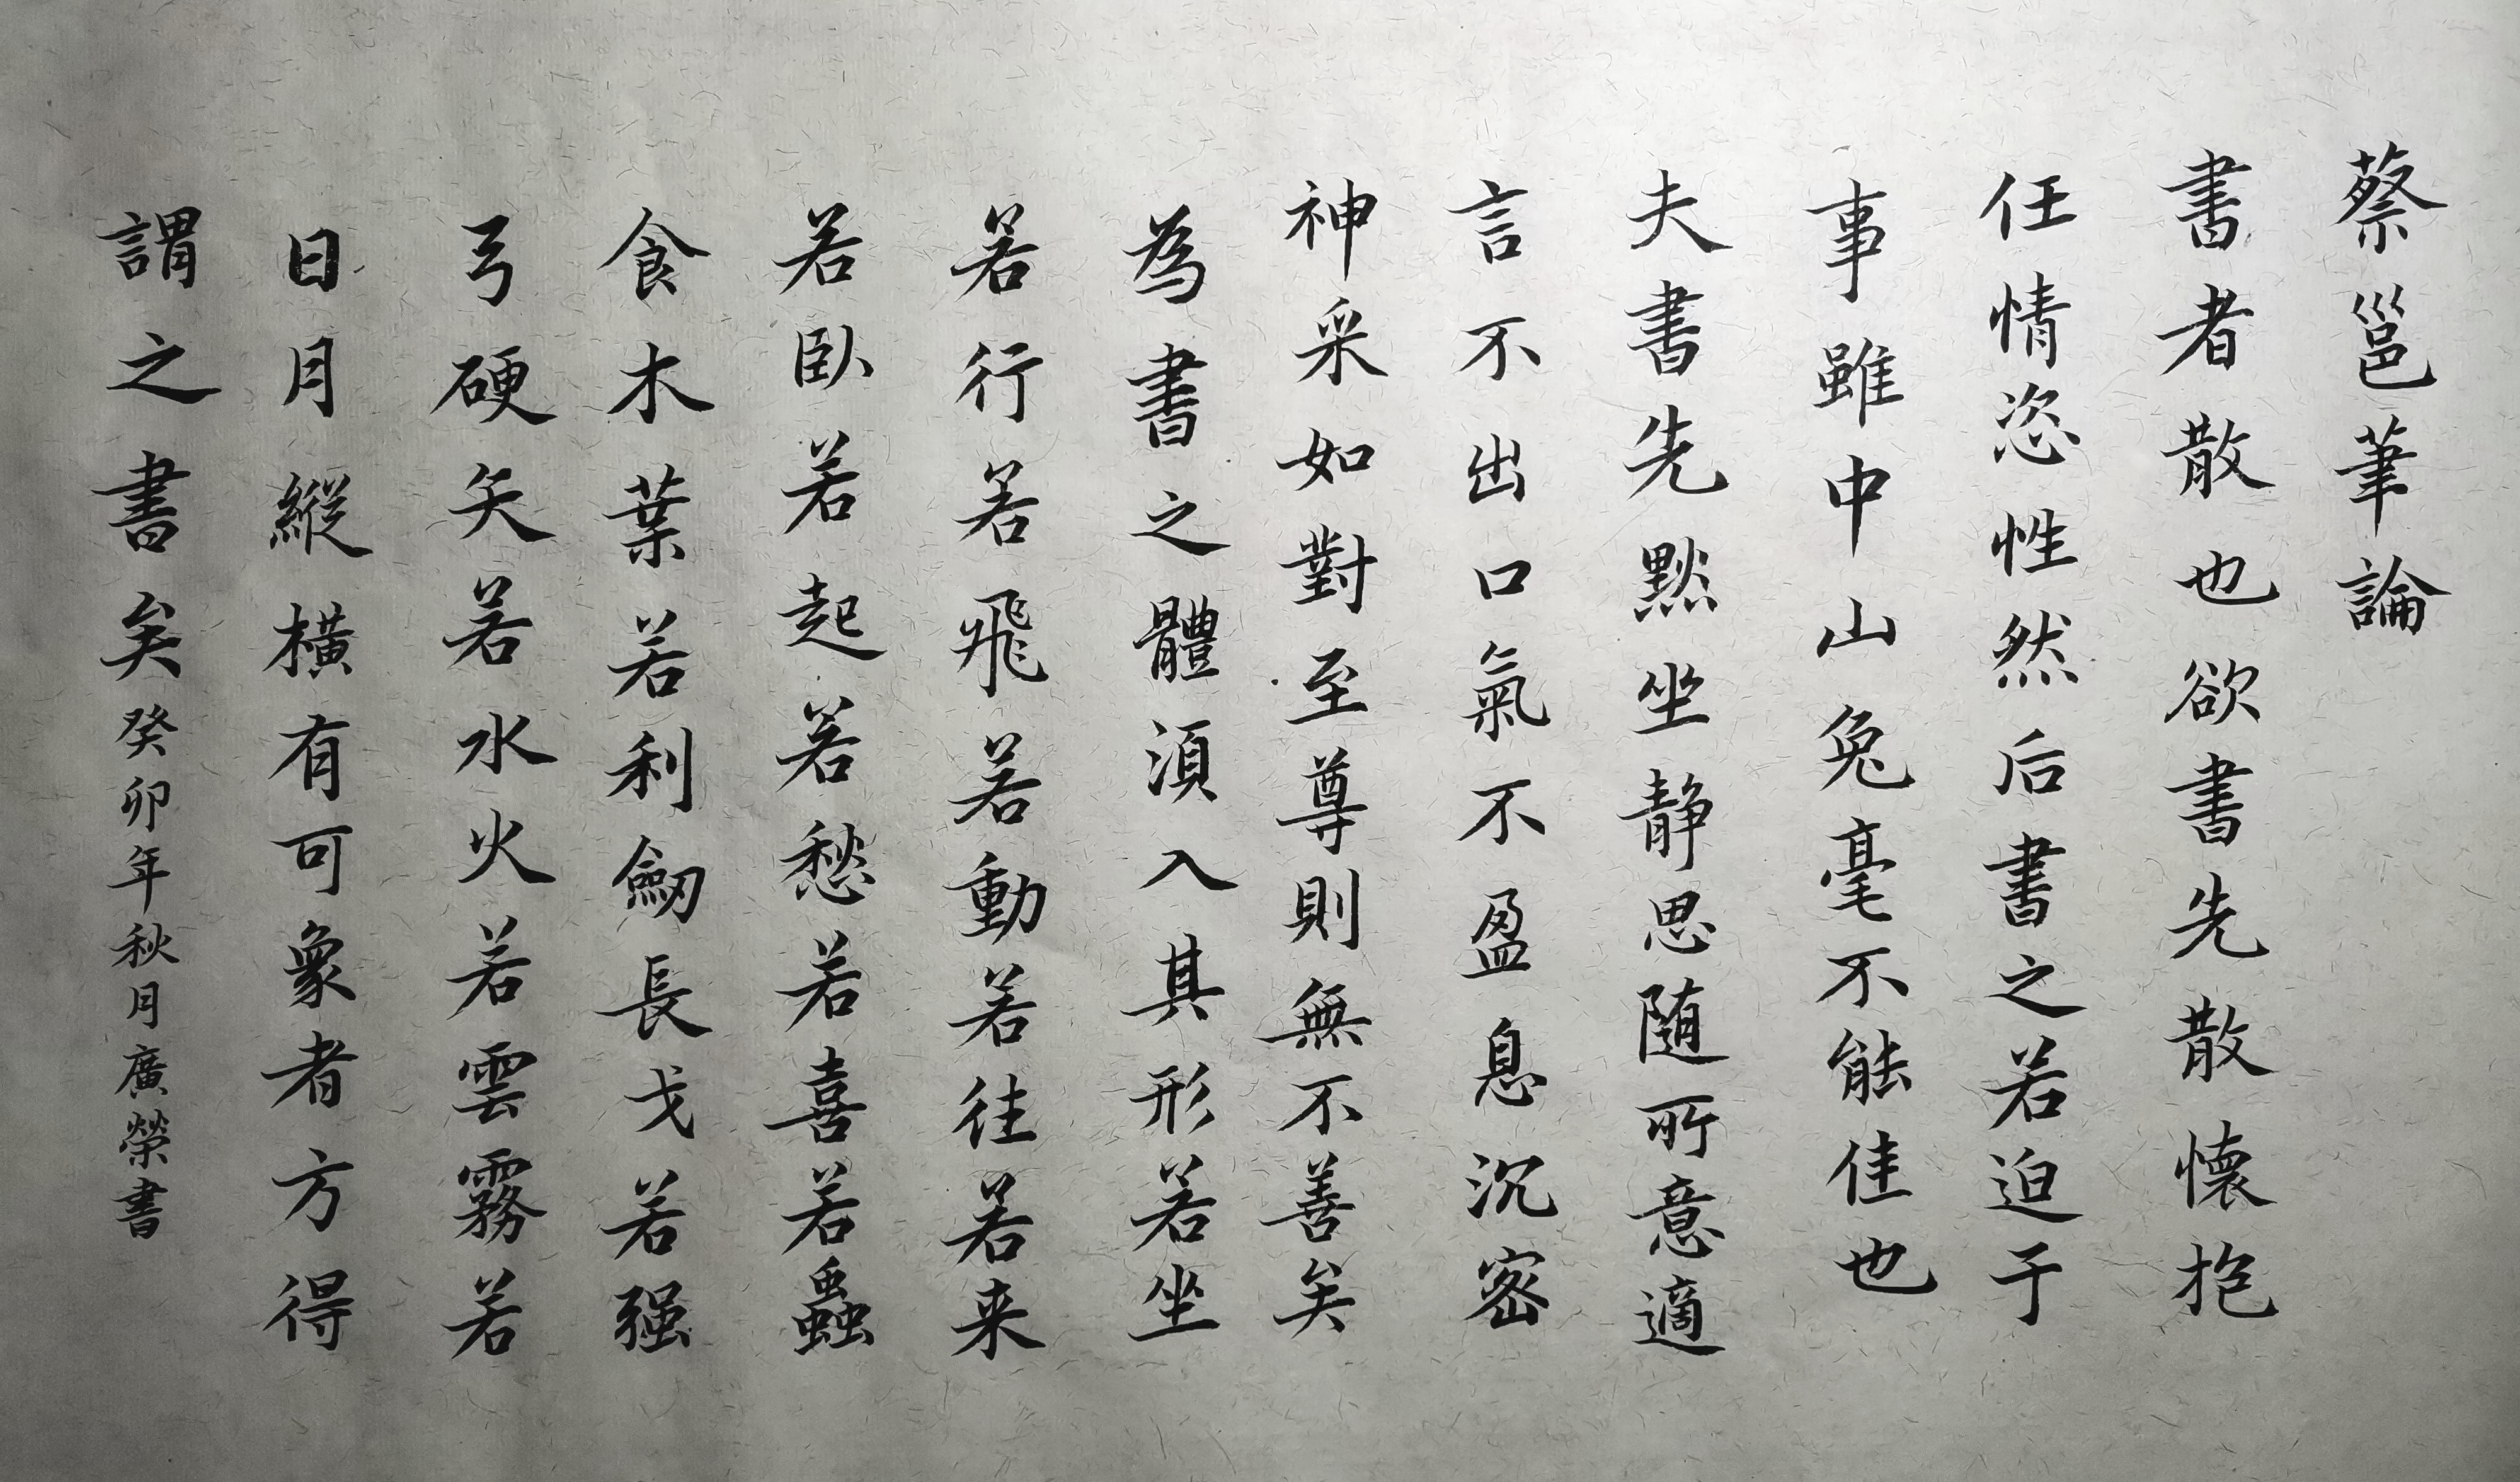 蔡邕筆論
書者散也欲書先散懷抱
任情恣性然后書之若迫于
事雖中山兔毫不能佳也
夫書先默坐静思随所意適
言不出口氣不盈息沉密
神采如對至尊則無不善矣
為書之體須入其形若坐
若行若飛若動若往若来
若臥若起若愁若喜若蟲
食木葉若利劒長戈若强
弓硬矢若水火若雲霧若
日月縱横有可象者方得
謂之書矣癸卯年秋月廣榮書